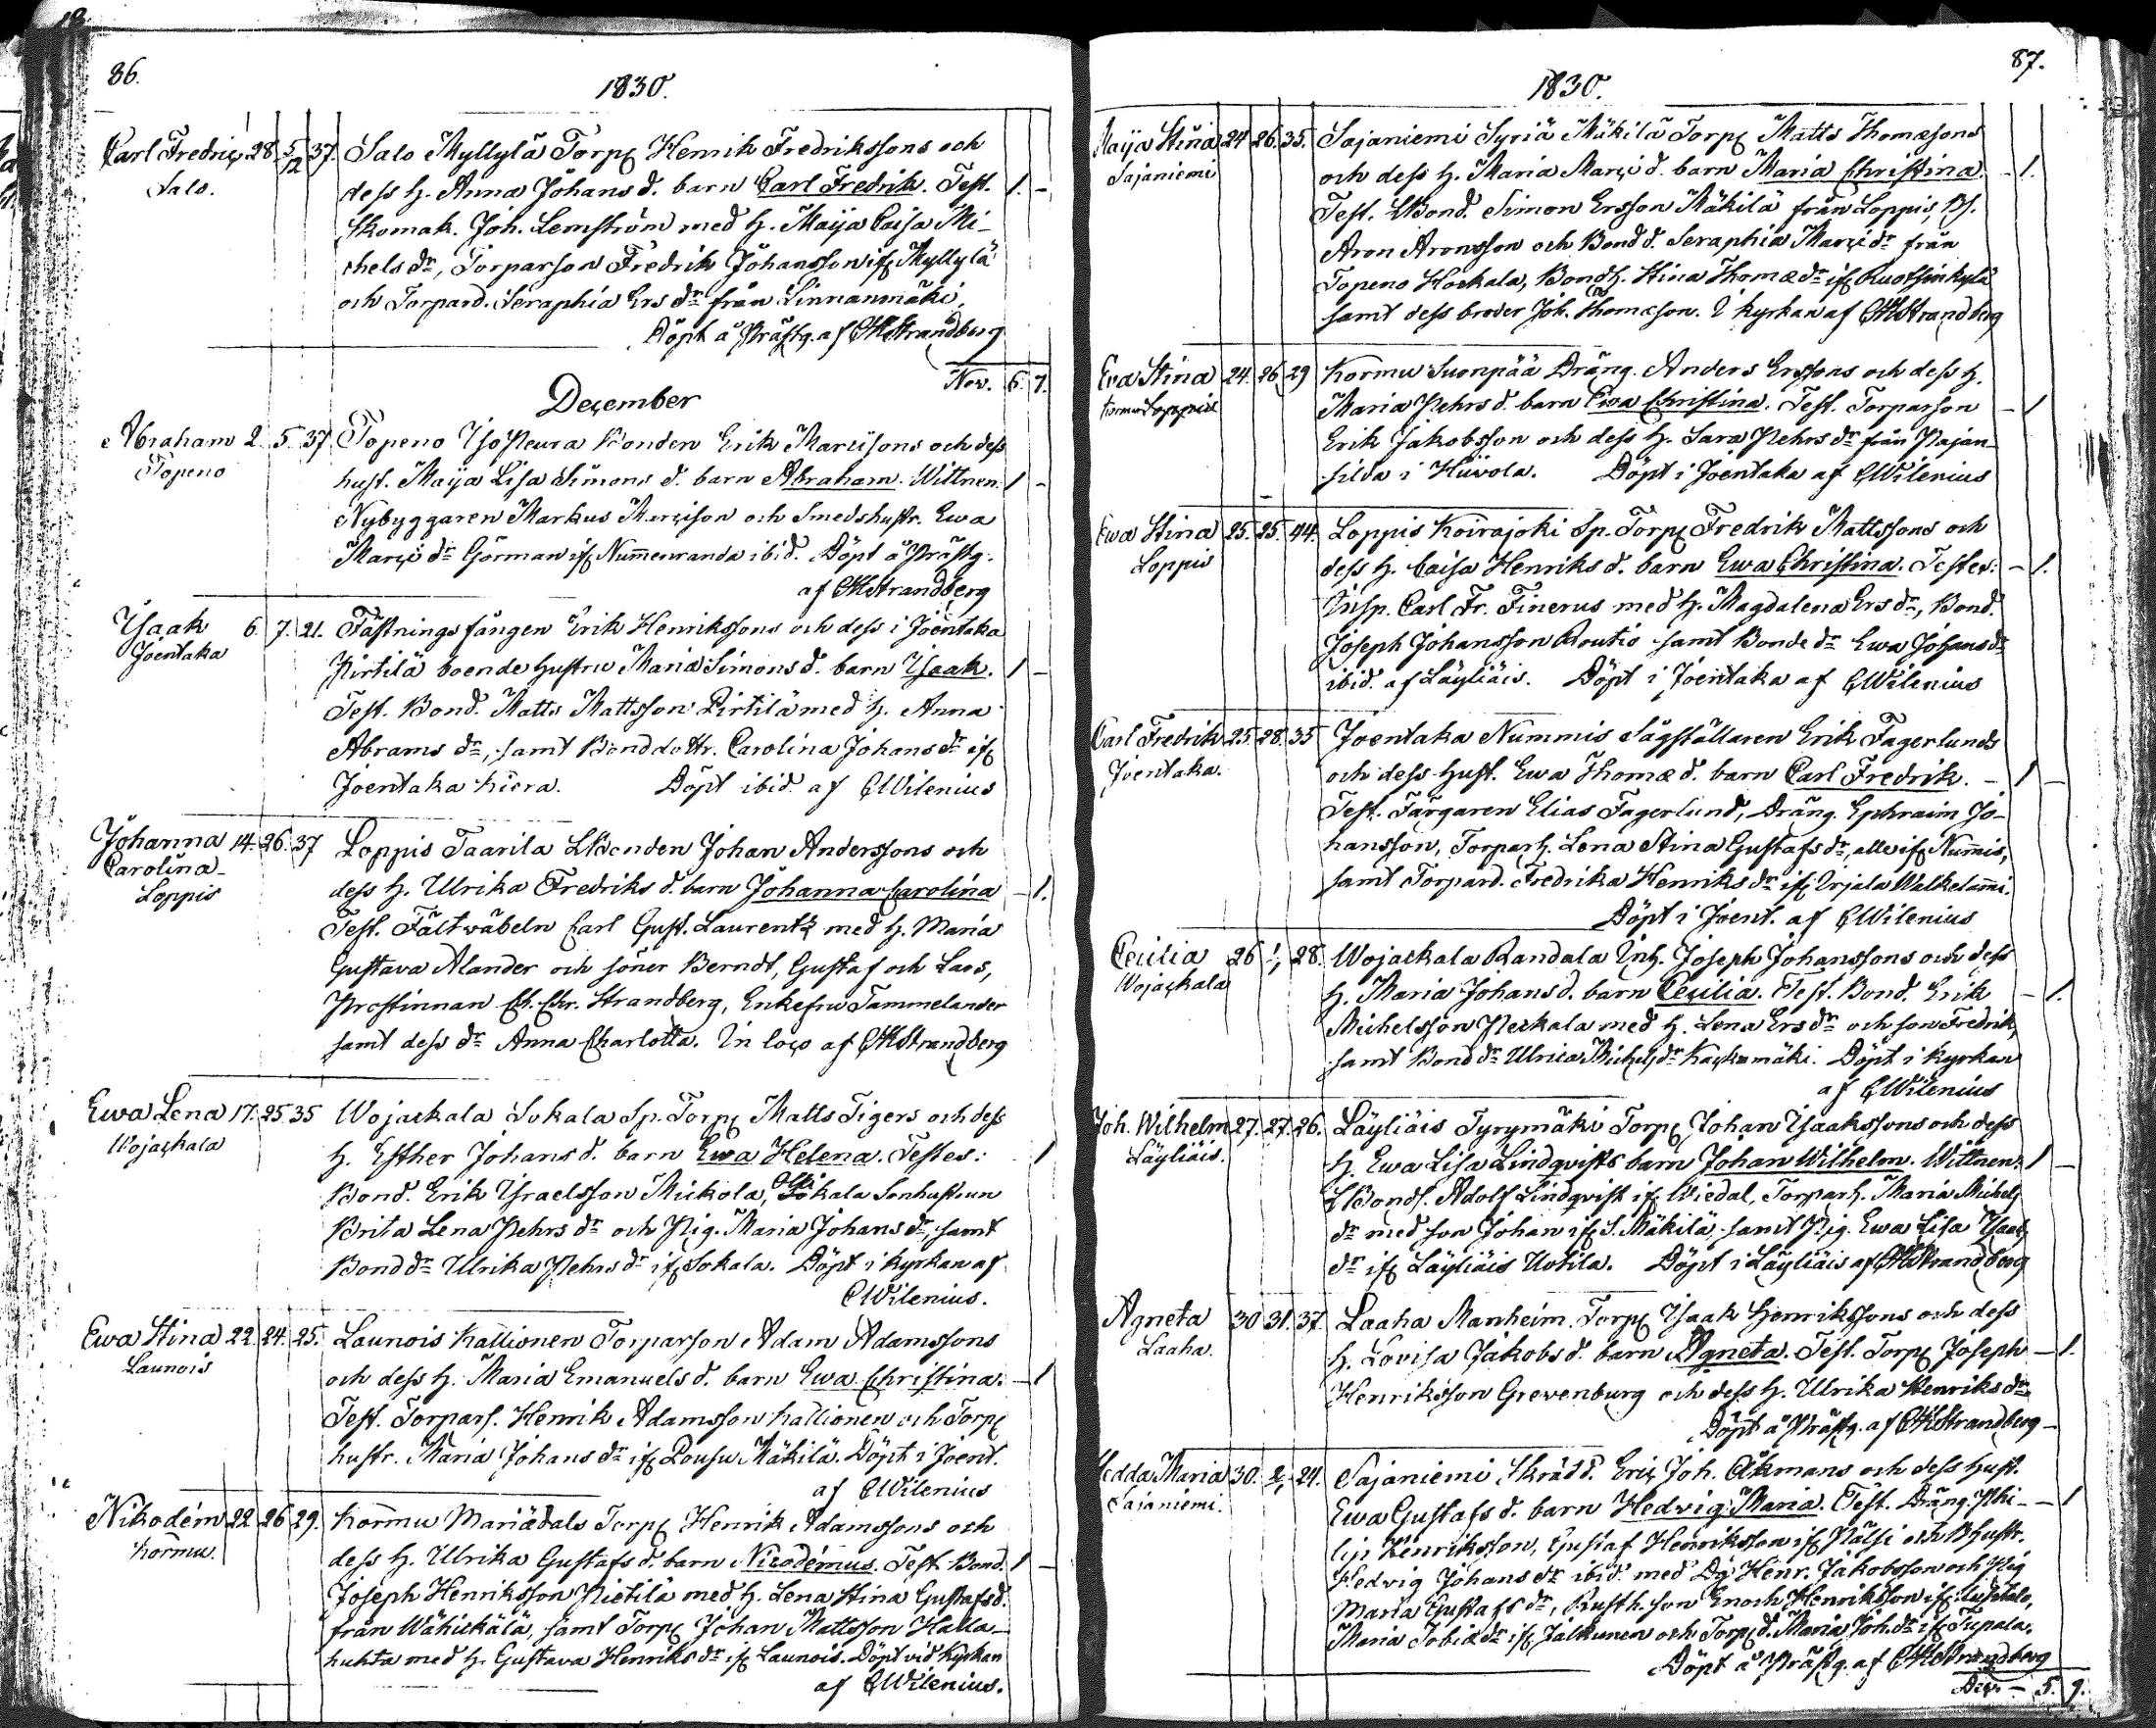 86.
1830.
Carl Fredric 28 5/12 37. Salo Myllylä Torp. Henrik Fredrikssons och
Salo. dess h. Anna Johans d. barn Carl Fredrik. Test. 1. -
Skomak. Joh. Lemström med h. Maija Caisa Mi-
chels dr, Torparson Fredrik Johansson if. Myllylä
och Torpard. Seraphia Ers dr från Linnanmäki.
Döpt å Prästg. af CHStrandberg
Nov. 6. 7.
December
Abraham 2. 5. 37 Topeno Iso Peura Bonden Erik Marcisons och dess
Topeno hust. Maija Lisa Simons d. barn Abraham. Wittnen: 1 -
Nybyggaren Markus Marcison och Smedshustr. Ewa
Marci dr Görman if. Nummenranda ibid. Döpt å Prästg.
af CHStrandberg
Isaak 6. 7. 21. Fästningsfången Erik Henrikssons och dess i Joentaka
Joentaka Pirtilä boende hustru Maria Simons d. barn Isaak. 1 -
Test. Bond. Matts Mattsson Pirtilä med h. Anna
Abrams dr, samt Bonddottr. Carolina Johans dr if.
Joentaka Kiera. Döpt ibid. af CWilenius
Johanna 14. 26. 37 Loppis Taarila LBonden Johan Anderssons och
Carolina dess h. Ulrika Fredriks d. barn Johanna Carolina - 1.
Loppis Test. Fältwäbeln Carl Gust. Laurentz med h. Maria
Gustava Alander och söner Berndt, Gustaf och Lars,
Prostinnan Ch. Chr. Strandberg, Enkefru Tammelander
samt dess dr Anna Charlotta. In loco af CHStrandberg
Ewa Lena 17. 25 35 Wojackala Sokala Sp. Torp. Matts Tigers och dess
Wojackala h. Esther Johans d. barn Ewa Helena. Testes: 1
Bond. Erik Israelsson Mickola, Olli Sokala Sonhustrun
Brita Lena Pehrs dr och Pig. Maria Johans dr, samt
Bond dr Ulrika Pehrs dr if. Sokala. Döpt i kyrkan af
CWilenius.
Ewa Stina 22. 24. 25. Launois Kallionen Torparson Adam Adamssons
Launois och dess h. Maria Emanuels d. barn Ewa Christina. - 1
Test. Torpars. Henrik Adamsson Kallionen och Torp.
hustr. Maria Johans dr if. Pousu Mäkilä. Döpt i Joent.
af CWilenius
Nikodém 22 26 29. Kormu Mariædals Torp. Henrik Adamssons och
Kormu. dess h. Ulrika Gustafs d. barn Nicodémus. Test. Bond. 1 -
Joseph Henriksson Pietilä med h. Lena Stina Gustafs d.
från Wähickälä, samt Torp. Johan Mattsson Halla-
huhta med h. Gustava Henriks dr if. Launois. Döpt vid kyrkan
af CWilenius.
87.
1830.
Maija Stina 24 26. 35. Sajaniemi Syriä Mäkilä Torp. Matts Thomæsons
Sajaniemi och dess h. Maria Marci d. barn Maria Christina. - 1.
Test. LBond. Simon Ersson Mäkilä från Loppis, Bs.
Aron Aronsson och Bond d. Seraphia Marci dr från
Topeno Hockala, Bondh. Stina Thomæ dr if. Ruotsinkylä
samt dess broder Joh. Thomæson. I kyrkan af CHStrandberg
Eva Stina 24. 26 29 Kormu Suonpää Dräng. Anders Erssons och dess h.
Kormu Loppis Maria Pehrs d. barn Ewa Christina. Test. Torparson - 1
Erik Jakobsson och dess h. Sara Pehrs dr från Pajan-
silda i Hüvola. Döpt i Joentaka af CWilenius
Ewa Stina 25. 25. 44. Loppis Koirajoki Sp. Torp. Fredrik Mattssons och
Loppis dess h. Caisa Henriks d. barn Ewa Christina. Testes: - 1.
Insp. Carl Fr. Tinerus med h. Magdalena Ers dr, Bond.
Joseph Johansson Routio samt Bonde dr Ewa Johans dr
ibid. af Läyliäis. Döpt i Joentaka af CWilenius
Carl Fredrik 25. 28. 35 Joentaka Nummis Sågställaren Erik Fagerlunds
Joentaka. och dess hust. Ewa Thomæ d. barn Carl Fredrik. - 1 -
Test. Färgaren Elias Fagerlund, Dräng. Ephraim Jo-
hansson, Torparh. Lena Stina Gustafs dr, alle if. Nummis,
samt Torpard. Fredrika Henriks dr if. Urjala Walkelammi.
Döpt i Joent. af CWilenius
Cecilia 26 1/1 28. Wojackala Randala Inh. Joseph Johanssons och dess
Wojackala h. Maria Johans d. barn Cecilia. Test. Bond. Erik - 1.
Michelsson Peckala med h. Lena Ers dr och son Fredrik,
samt Bond dr Ulrica Michels dr Kackamäki. Döpt i kyrkan
af CWilenius
Joh. Wilhelm 27. 27. 26. Läyliäis Tyrymäki Torp. Johan Isaakssons och dess
Läyliäis. h. Ewa Lisa Lindqvists barn Johan Wilhelm. Wittnen: 1 -
LBonds. Adolf Lindqvist if. Wiedal, Torparh. Maria Michels
dr med son Johan if. S. Mäkilä samt Pig. Ewa Lisa Isaaks
dr if. Läyliäis Uotila. Döpt i Läyliäis af CHStrandberg
Agneta 30 31. 37. Laaha Manheim Torp. Isaak Henrikssons och dess
Laaha. h. Lovisa Jakobs d. barn Agneta. Test. Torp. Joseph - 1.
Henriksson Grevenburg och dess h. Ulrika Henriks dr
Döpt å Prästg. af CHStrandberg
Hedda Maria 30. 2/1 24. Sajaniemi Skrädd. Eric Joh. Åkmans och dess hust.
Sajaniemi. Ewa Gustafs d. barn Hedvig Maria. Test. Dräng. Phi- - 1
lip Henriksson, Gustaf Henriksson if. Pälsi och Bhustr.
Hedvig Johans dr ibid. med Dg Henr. Jakobsson och Pig
Maria Gustafs dr, Rusth. son Enoch Henriksson if.
Maria Tobiæ dr if. Jälkunen och Torp. d. Maria Joh. dr if. Tupala.
Döpt å Prästg. af CHStrandberg
Dec. - 5. 9.